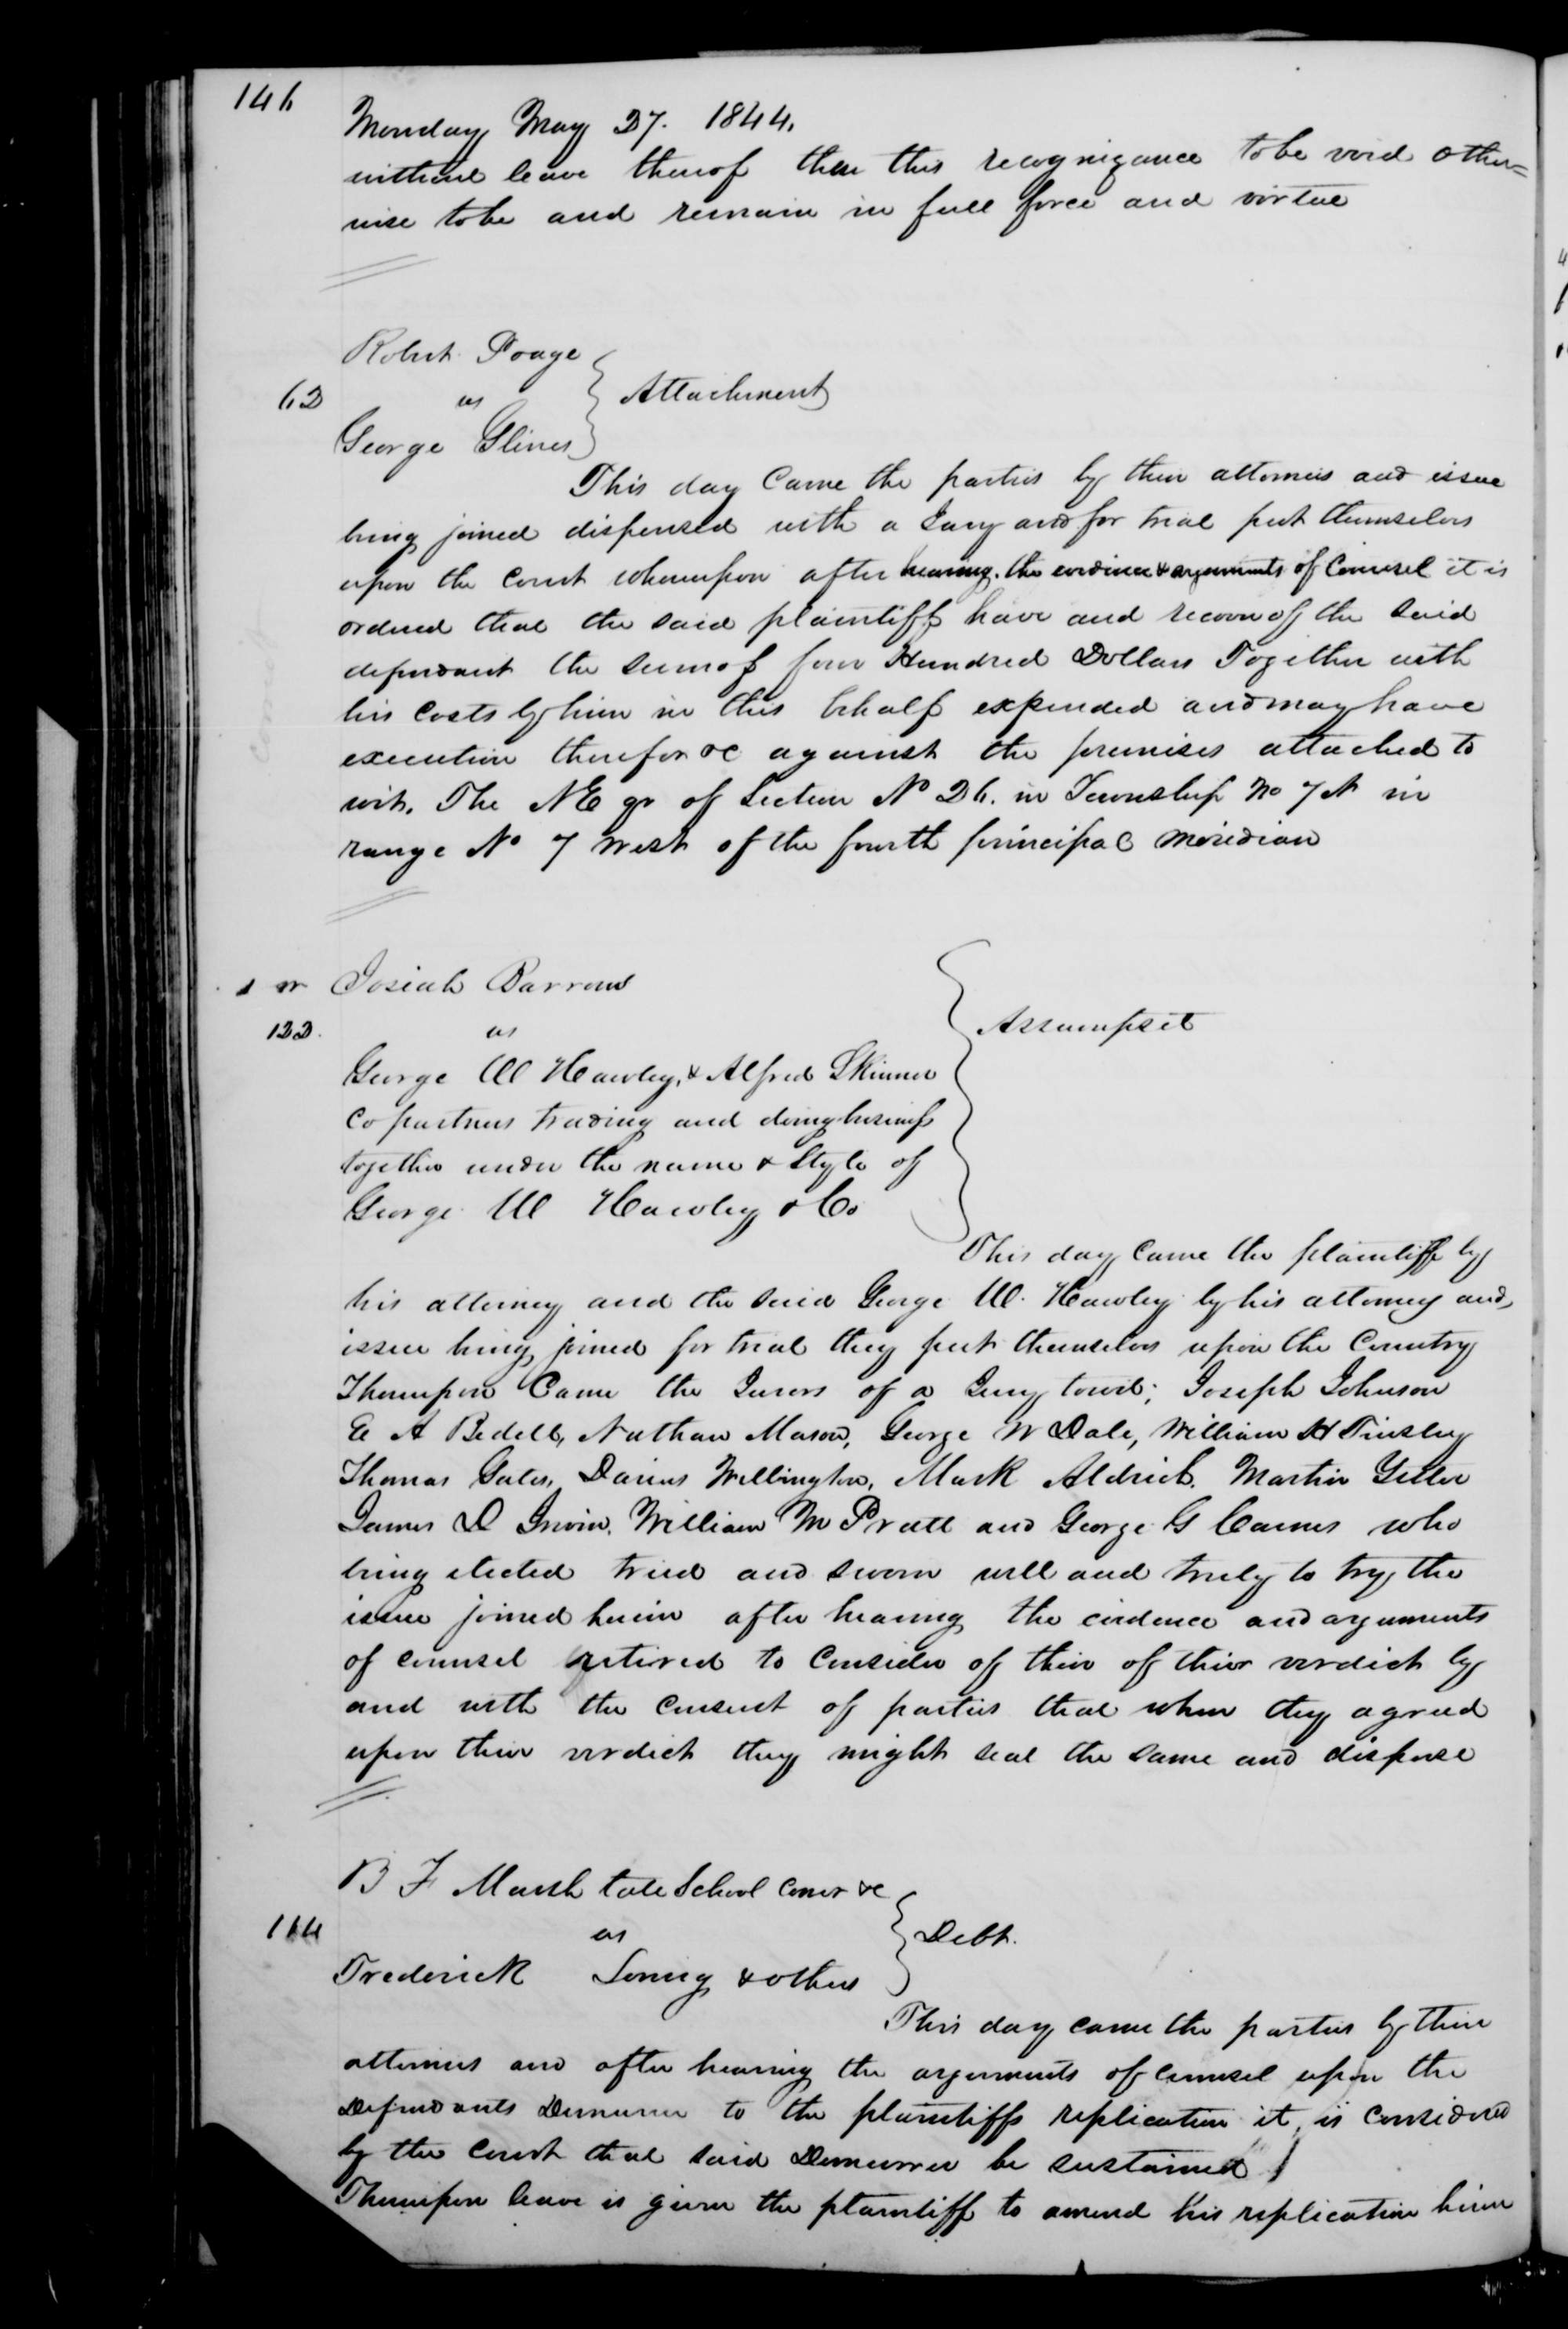 146
Monday May 27. 1844.
without leave thereof then this recognizance to be void other=
wise to be and remain in full force and virtue
Robert Poage
62 vs } Attachment
George Glines
This day Came the parties by their attorneis and issue
being joined dispensed with a Jury and for trial put themselves
upon the Court whereupon after hearing the evidence & arguments of Counsel it is
ordered that the said plaintiff have and recover of the said
defendant the sum of four Hundred Dollars Together with
his Costs by him in this behalf expended and may have
execution therefor &c against the premises attached to
wit. The NE qr of Section No 26. in Township No 7 N in
range No 7 West of the fourth principal Meridian
Josiah Barrows
122. vs } Assumpsit
George W Hawley, & Alfred Skinner
Co partners trading and doing business
together under the name & Style of
George W Hawley & Co
This day Came the plaintiff by
his attorney and the said George W. Hawley by his attorney and
issue being joined for trial they put themselves upon the Country
Thereupon Came the Jurors of a Jury towit; Joseph Johnson
E A Bedell, Nathan Mason, George W Dale, William H Tinsley
Thomas Gates, Darius Wellington, Mark Aldrich. Martin Yetter
James D Irwin, William M Pratt and George G Carnes who
being elected tried and sworn well and truly to try the
issue joined herein after hearing the evidence and arguments
of counsel retired to Consider of their of their verdict by
and with the Consent of parties that when they agreed
upon their verdict they might seal the same and disperse
B F Marsh late School Comr &c
114 vs } Debt.
Frederick Loring & others
This day came the parties by their
attorneis and after hearing the arguments of Counsel upon the
Defendants Demurrer to the plaintiffs replication it is Considered
by the Court that said Demurrer be sustained
Thereupon leave is given the plaintiff to amend his replication herein